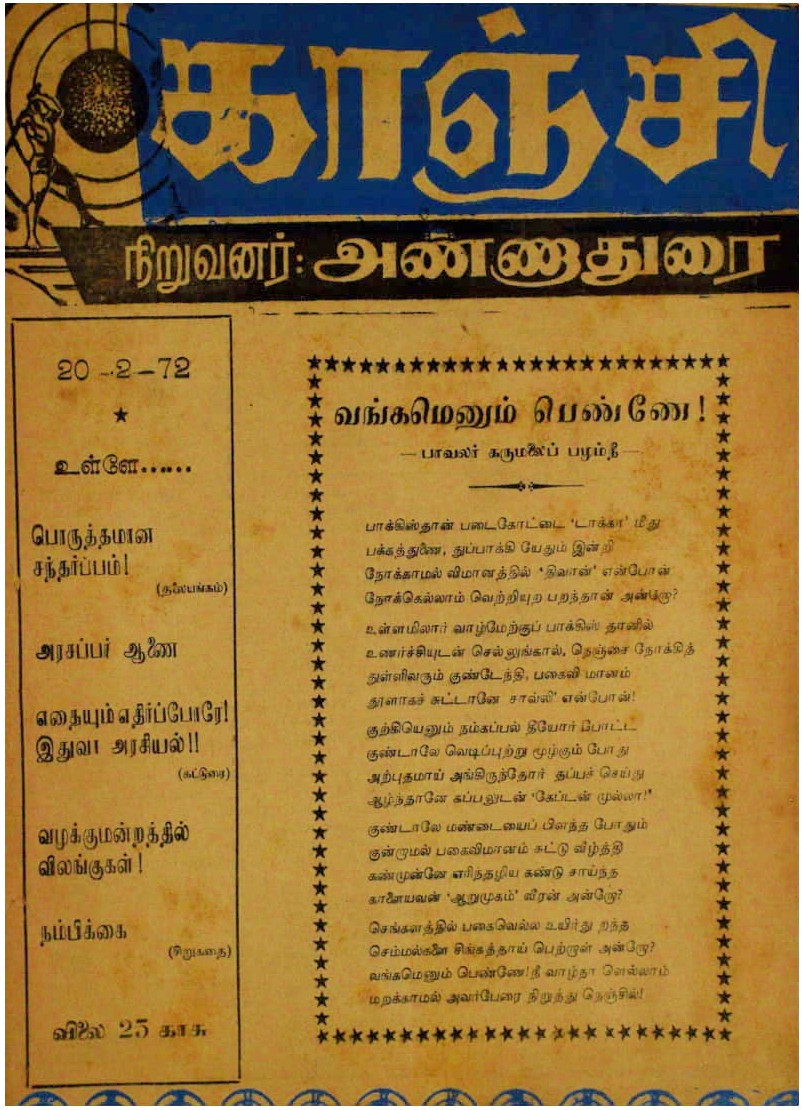 காஞ்சி
நிறுவனர்: அண்ணாதுரை
20-2-72
உள்ளே......
பொருத்தமான
சந்தர்ப்பம்!
(தலையங்கம்)
அரசப்பர் ஆணை
எதையும் எதிர்ப்போரே!
இதுவா அரசியல்!!
(கட்டுரை)
வழக்குமன்றத்தில்
விலங்குகள்!
நம்பிக்கை
(சிறுகதை)
விலை 25 காசு
வங்கமெனும் பெண்ணே!
— பாவலர் கருமலைப் பழம்நீ —
பாக்கிஸ்தான் படைகோட்டை ‘டாக்கா’ மீது
பக்கத்துணை, துப்பாக்கி யேதும் இன்றி
நோக்காமல் விமானத்தில் ‘திவான்’ என்போன்
நோக்கெல்லாம் வெற்றியுற பறந்தான் அன்றோ?
உள்ளமிலார் வாழ்மேற்குப் பாக்கிஸ் தானில்
உணர்ச்சியுடன் செல்லுங்கால், நெஞ்சை நோக்கித்
துள்ளிவரும் குண்டேந்தி, பகைவி மானம்
தூளாகச் சுட்டானே சாவ்லி’ என்போன்!
குற்கியெனும் நம்கப்பல் தீயோர் போட்ட
குண்டாலே வெடிப்புற்று மூழ்கும் போது
அற்புதமாய் அங்கிருந்தோர் தப்பச் செய்து
ஆழ்ந்தானே கப்பலுடன் ‘கேப்டன் முல்லா!’
குண்டாலே மண்டையைப் பிளந்த போதும்
குன்றாமல் பகைவிமானம் சுட்டு வீழ்த்தி
கண்முன்னே எரிந்தழிய கண்டு சாய்ந்த
காளையவன் ‘ஆறுமுகம்’ வீரன் அன்றோ?
செங்களத்தில் பகைவெல்ல உயிர்து றந்த
செம்மல்களை சிங்கத்தாய் பெற்றாள் அன்றோ?
வங்கமெனும் பெண்ணே!நீ வாழ்நா ளெல்லாம்
மறக்காமல் அவர்பேரை நிறுத்து நெஞ்சில்!